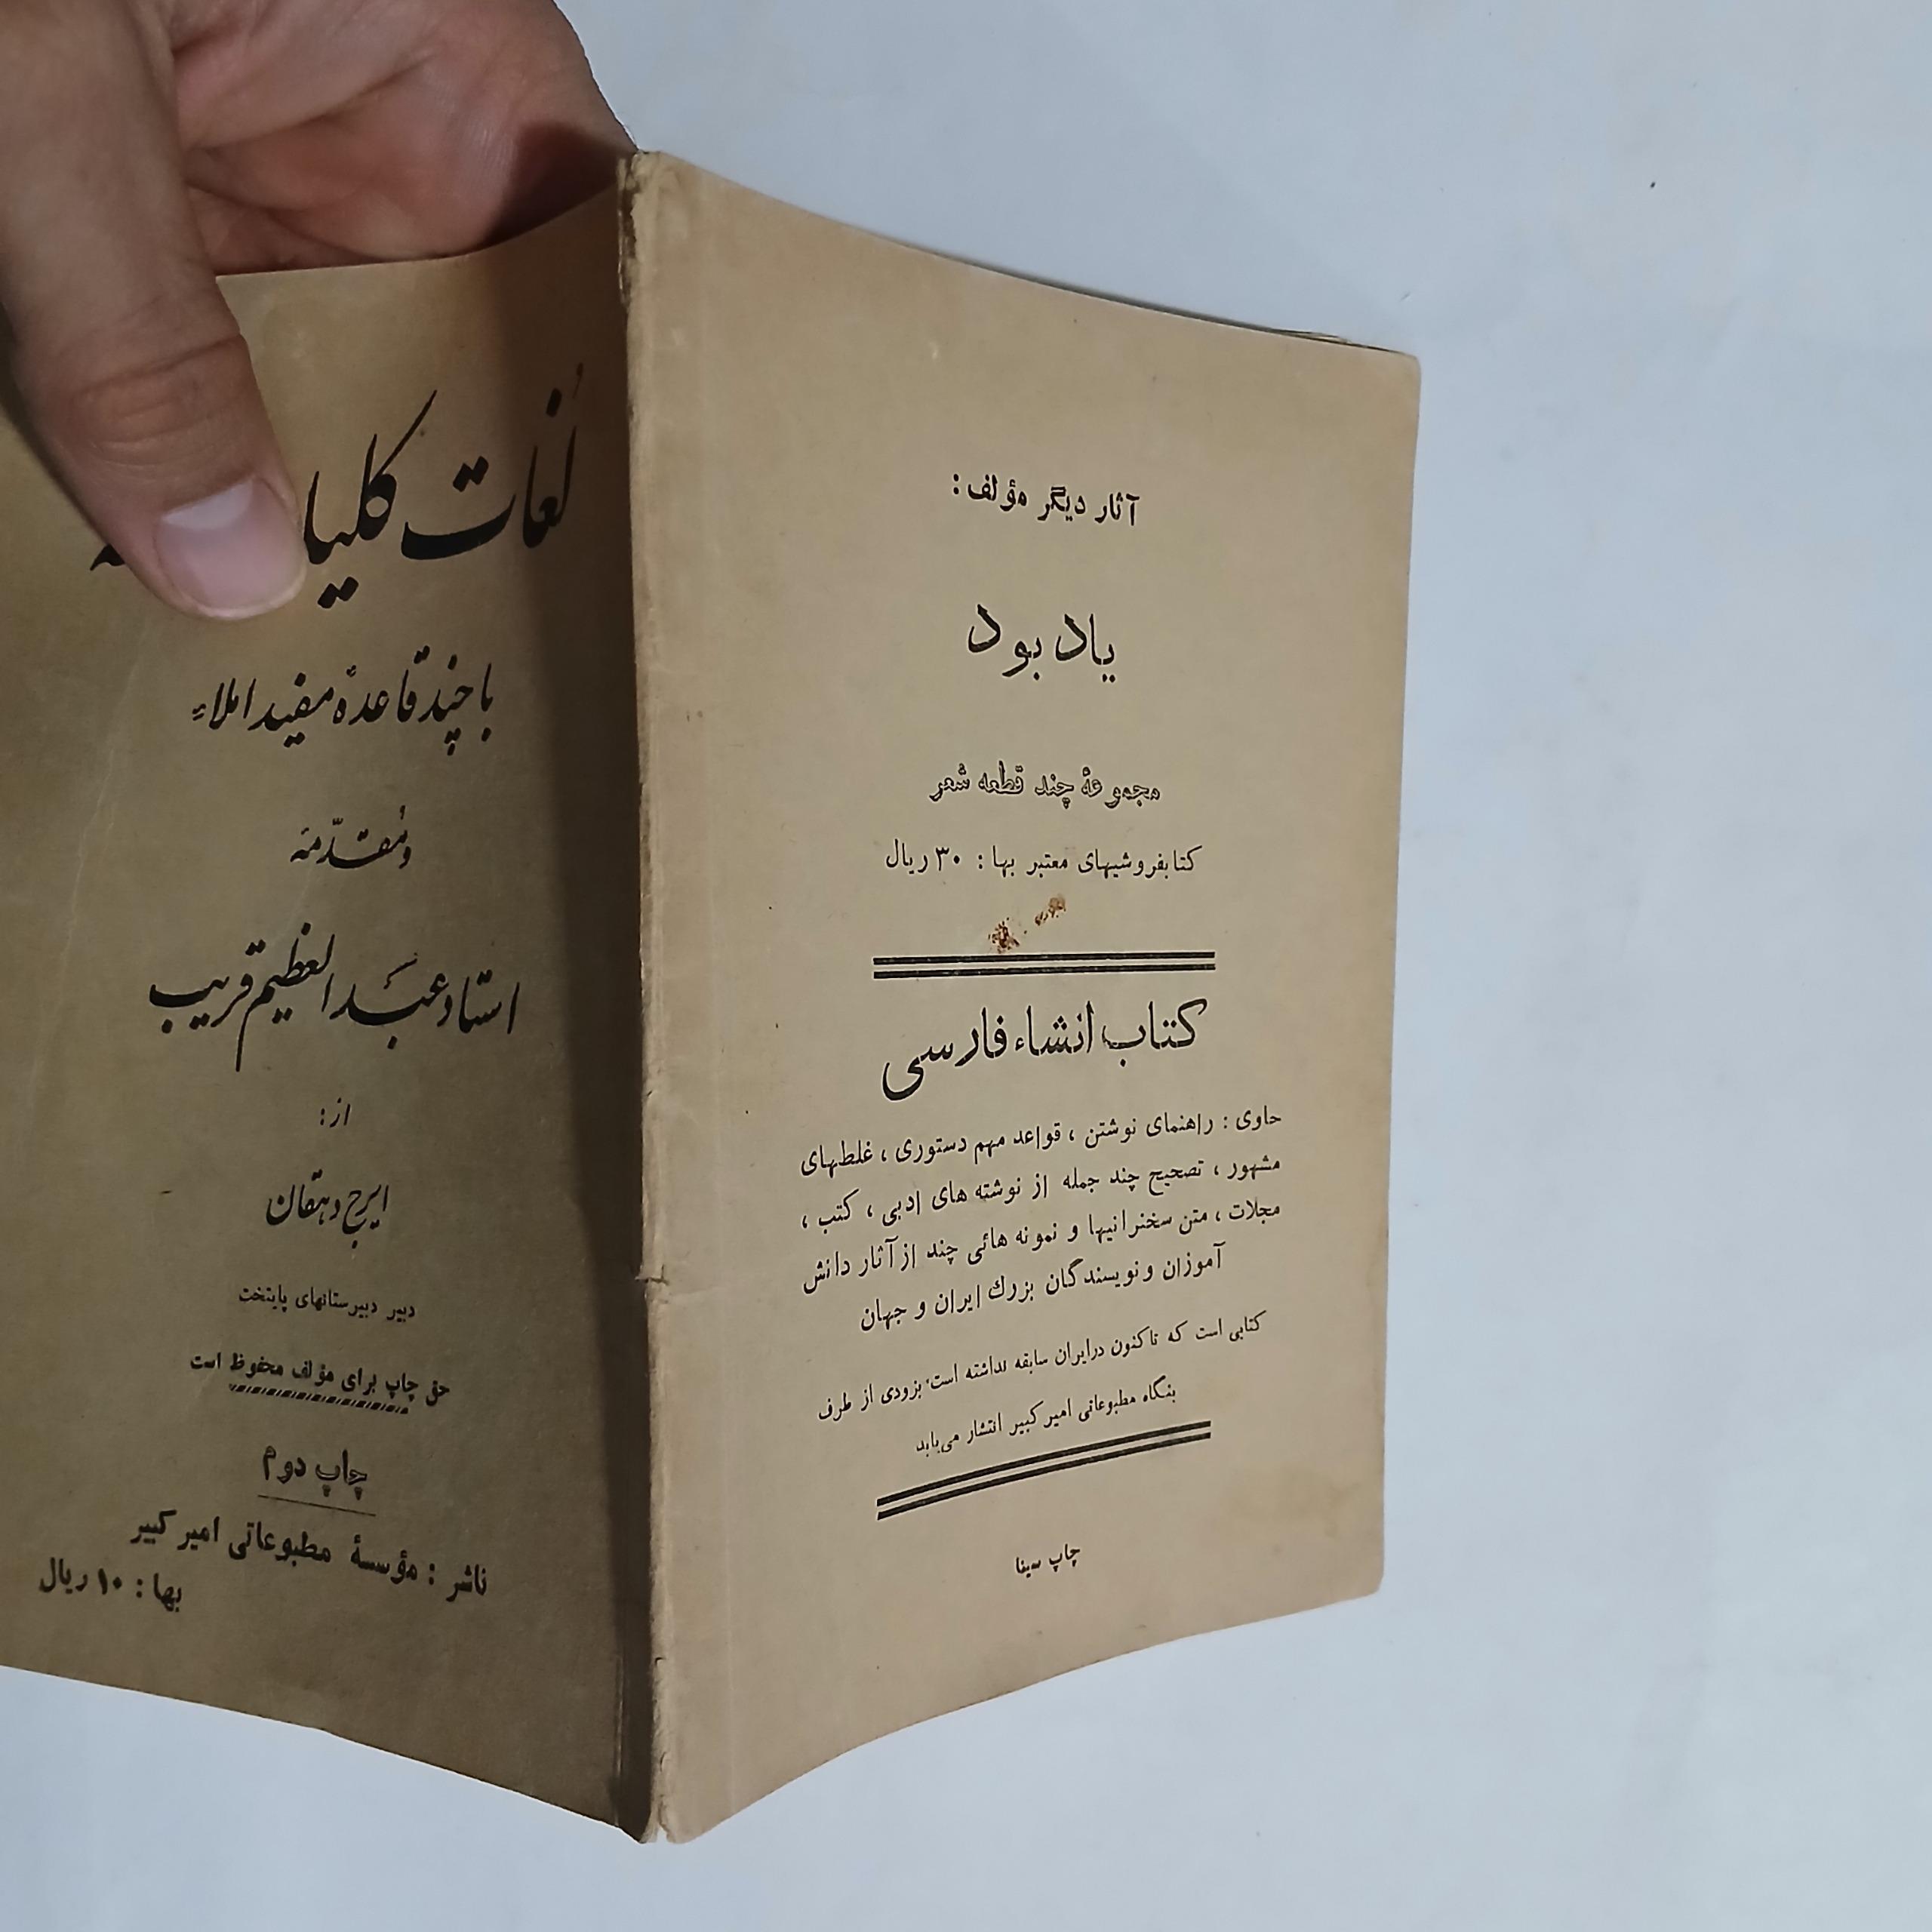 لُغات کلیا
با چند قاعدهٔ مفید املاء
و مُقدّمه
استاد عبدالعظیم قریب
از:
ایرج دهقان
دبیر دبیرستانهای پایتخت
حق چاپ برای مؤلف محفوظ است
چاپ دوم
ناشر : مؤسسهٔ مطبوعاتی امیرکبیر
بها : ۱۰ ریال
آثار دیگر مؤلف:
یاد بود
مجموعهٔ چند قطعه شعر
کتابفروشیهای معتبر بها : ۳۰ ریال
کتاب انشاء فارسی
حاوی : راهنمای نوشتن ، قواعد مهم دستوری ، غلطهای
مشهور ، تصحیح چند جمله از نوشته های ادبی ، کتب ،
مجلات ، متن سخنرانیها و نمونه هائی چند از آثار دانش
آموزان و نویسندگان بزرك ایران و جهان
کتابی است که تاکنون درایران سابقه نداشته است، بزودی از طرف
بنگاه مطبوعاتی امیرکبیر انتشار می‌یابد
چاپ سینا